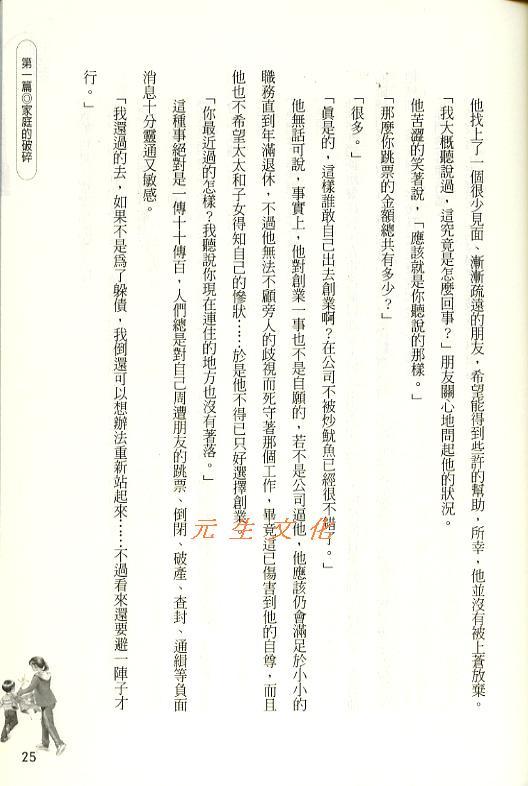 第一篇◎家庭的破碎
他找上了一個很少見面、漸漸疏遠的朋友，希望能得到些許的幫助，所幸，他並沒有被上蒼放棄。
「我大概聽說過，這究竟是怎麼回事？」朋友關心地問起他的狀況。
他苦澀的笑著說，「應該就是你聽說的那樣。」
「那麼你跳票的金額總共有多少？」
「很多。」
「眞是的，這樣誰敢自己出去創業啊？在公司不被炒魷魚已經很不錯了。」
他無話可說，事實上，他對創業一事也不是自願的，若不是公司逼他，他應該仍會滿足於小小的
職務直到年滿退休，不過他無法不顧旁人的歧視而死守著那個工作，畢竟這已傷害到他的自尊，而且
他也不希望太太和子女得知自己的慘狀……於是他不得已只好選擇創業。
「你最近過的怎樣？我聽說你現在連住的地方也沒有著落。」
這種事絕對是一傳十十傳百，人們總是對自己周遭朋友的跳票、倒閉、破產、查封、通緝等負面
消息十分靈通又敏感。
「我還過的去，如果不是爲了躲債，我倒還可以想辦法重新站起來……不過看來還要避一陣子才
行。」
元生文化
25